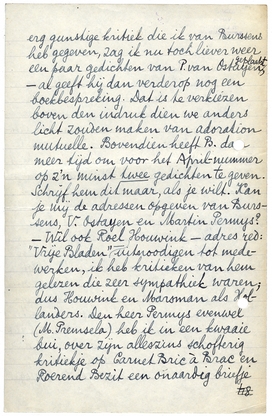 erg gunstige kritiek die ik van Burssens
heb gegeven, zag ik nu toch liever weer
een paar gedichten van P. van Ostayen, geplaatst
— al geeft hij dan verderop nog een
boekbespreking. Dat is te verkiezen
boven den indruk dien we anders
licht zouden maken van adoration
mutuelle. Bovendien heeft B. da
meer tijd om voor het April-nummer
op z'n minst twee gedichten te geven.
Schrijf hem dit maar, als je wilt. Kan
je mij de adressen opgeven van Burs-
sens, V. Ostayen en Martin Permys?
— Wil ook Roel Houwink — adres red:
"Vrije Bladen" — uitnoodigen tot mede-
werken, ik heb kritieken van hem
gelezen die zeer sympathiek waren;
dus Houwink en Marsman als Hol-
landers. Den heer Permys evenwel
(M. Premsela) heb ik in een kwaaie
bui, over zijn alleszins schofterig
kritiekje op Carnet Bric à Brac en
Roerend Bezit een onaardig briefje